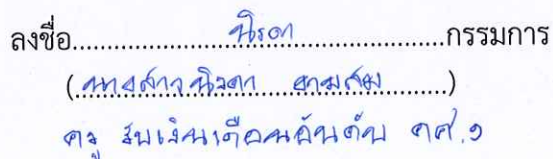 ลงชื่อ..........นิรดา..........กรรมการ
(นางสาวนิรดา งามสม)
ครู รับเงินเดือนอันดับ คศ.๑